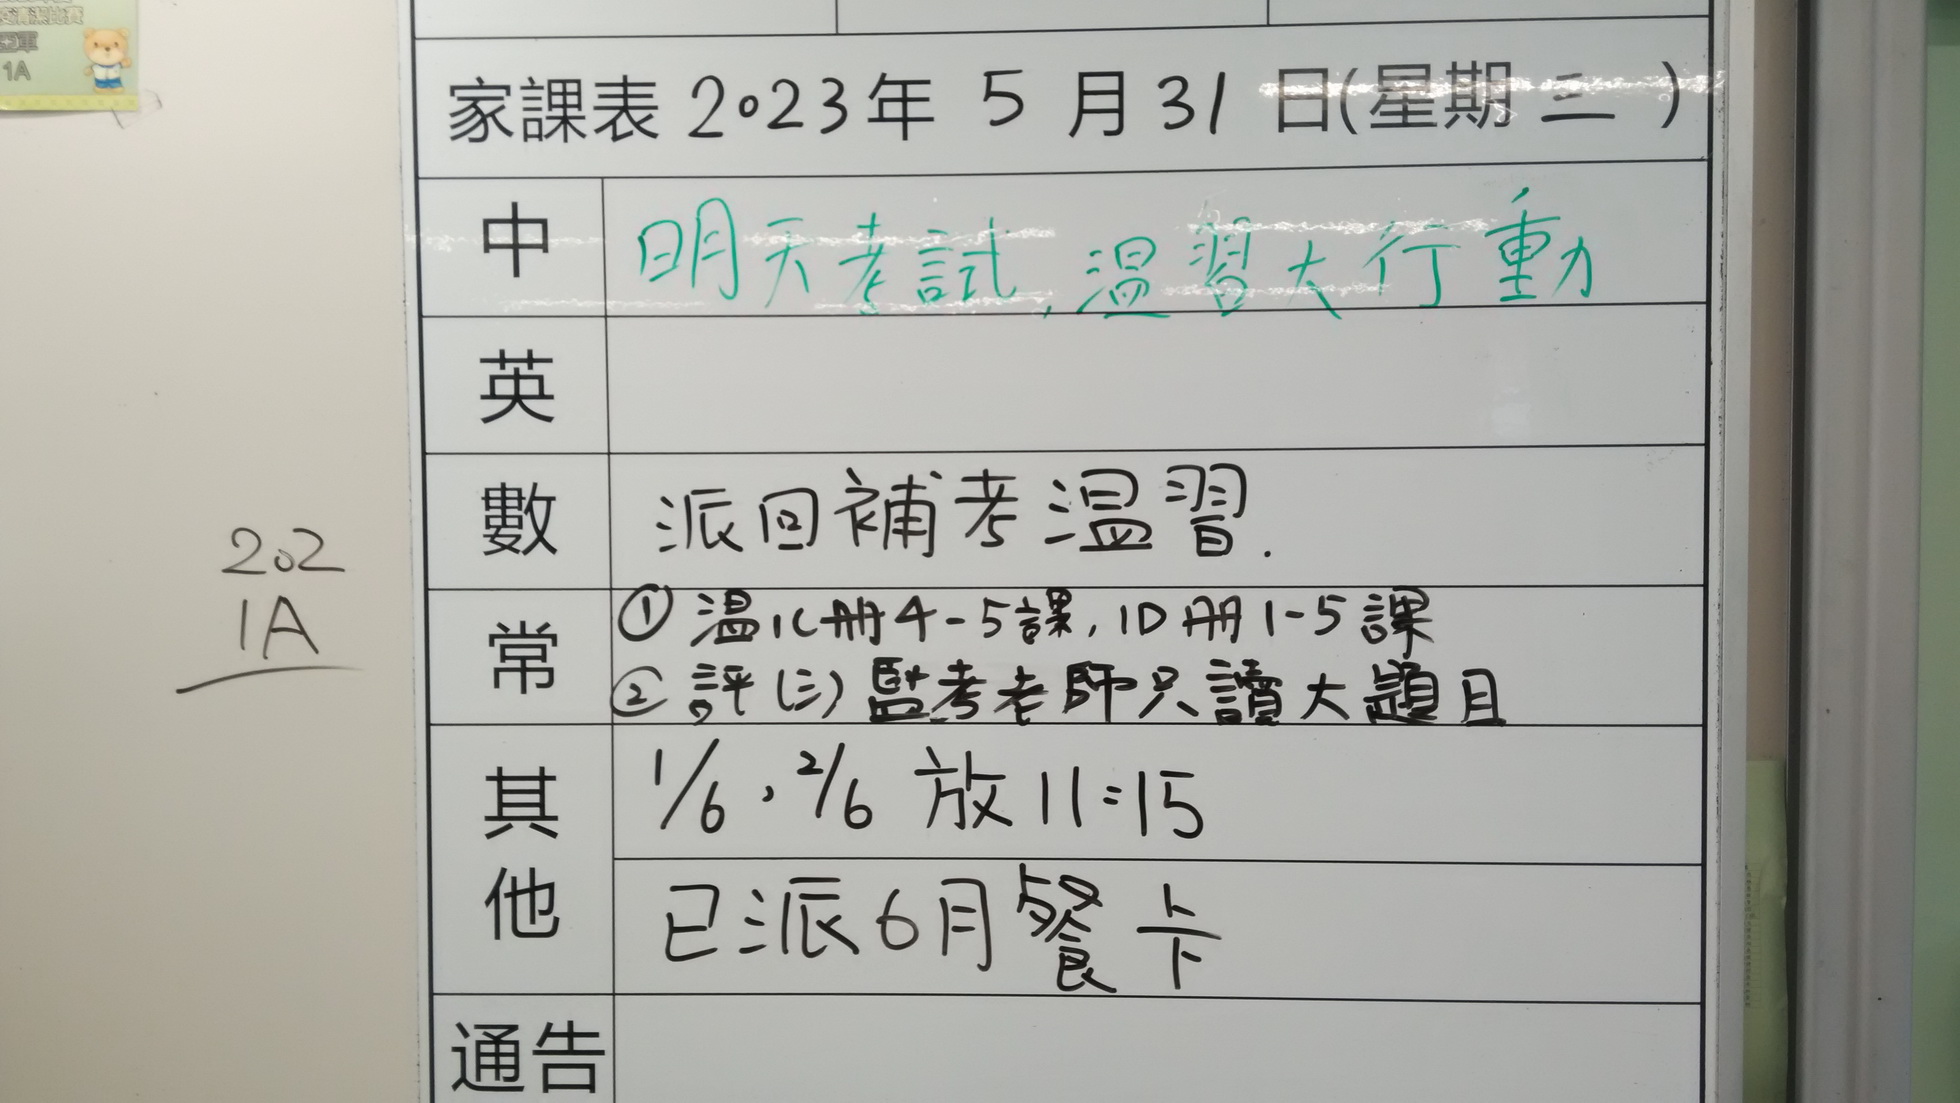 潔比賽
冠軍
1A
家課表 2023年 5 月 31 日(星期 三 )
中 明天考試,温習大行動
英
數 派回補考温習.
常 ① 温1C冊4-5課, 1D冊1-5課
② 評(三) 監考老師只讀大題目
其他 1/6、2/6 放11:15
已派6月餐卡
通告
202
1A